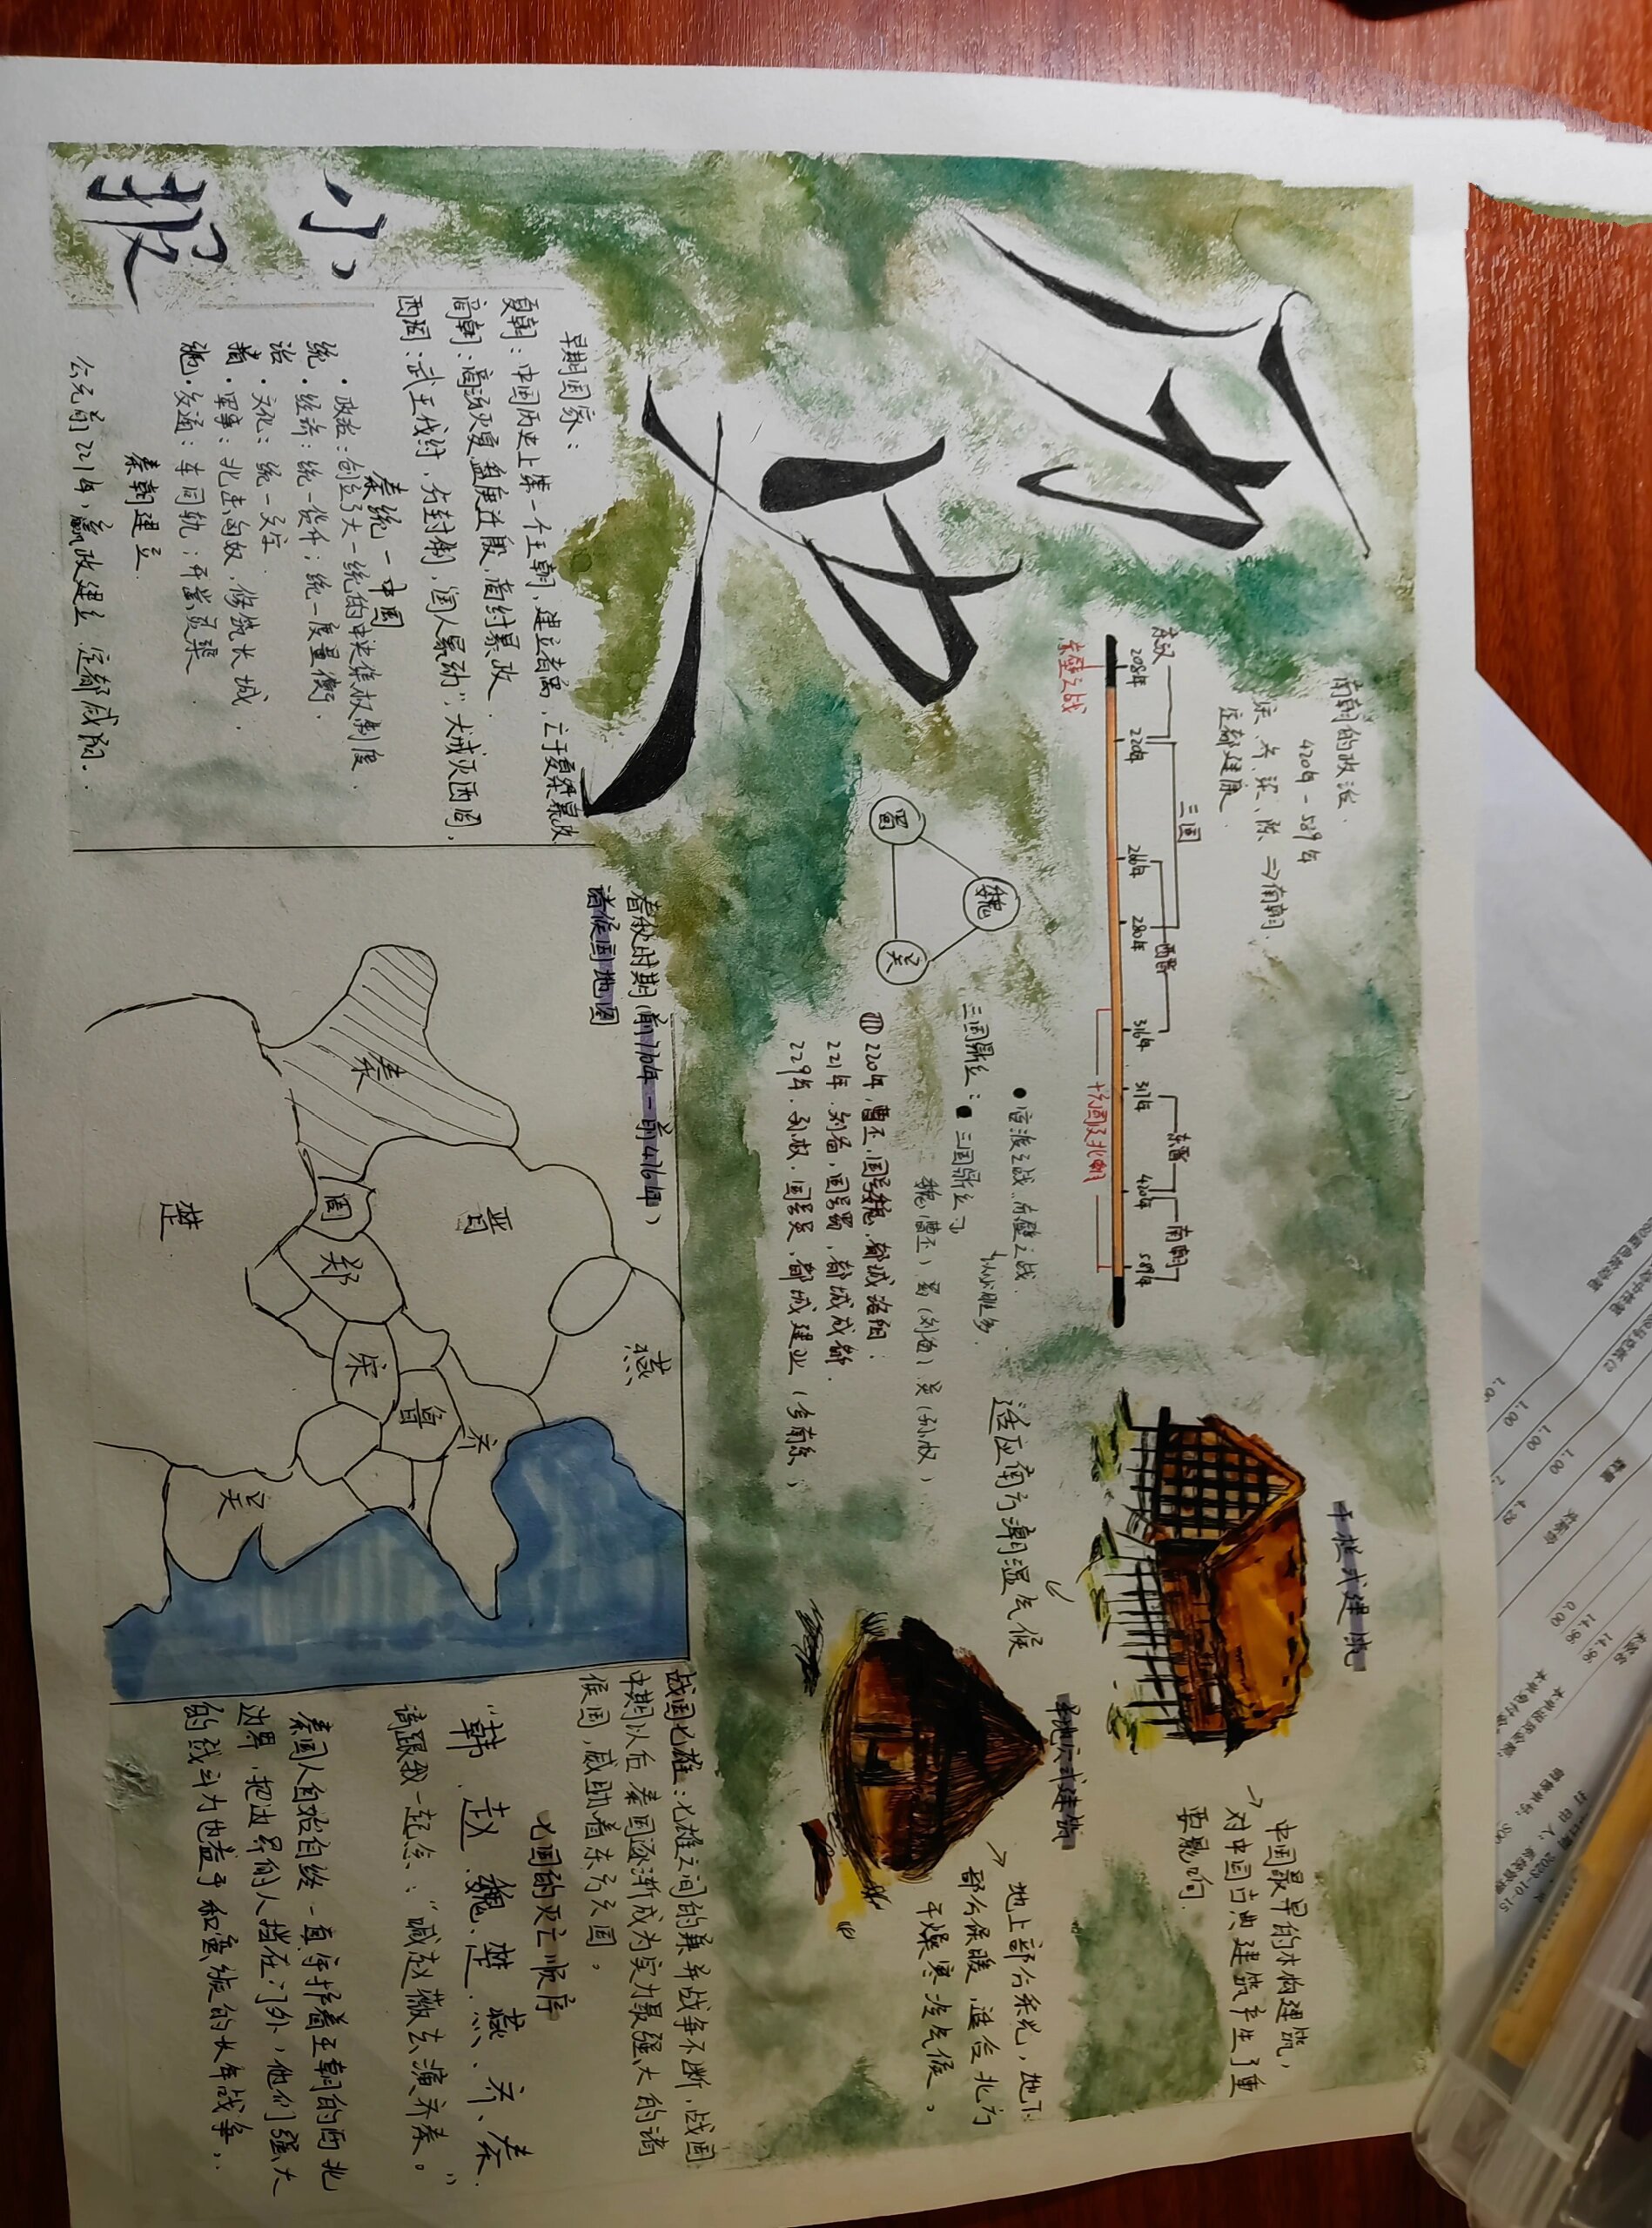 历史
小报
南朝的政治.
420年-589年
宋、齐、梁、陈 ⇒ 南朝.
定都建康.
东汉
三国
西晋
东晋
南朝
208年
220年
266年
280年
316年
317年
420年
589年
赤壁之战
十六国及北朝
魏
蜀
吴
官渡之战、赤壁之战.
以少胜多.
三国鼎立:
三国鼎立
魏(曹丕)蜀(刘备)吴(孙权)
220年,曹丕,国号魏,都城洛阳;
221年,刘备,国号蜀,都城成都.
229年,孙权,国号吴,都城建业(今南京)
干栏式建筑
中国最早的木构建筑,
对中国古典建筑产生了重
要影响.
适应南方潮湿气候
半地穴式建筑
地上部分采光,地下
部分保暖,适合北方
干燥寒冷气候。
早期国家:
夏朝:中国历史上第一个王朝,建立者禹,亡于夏桀暴政
商朝:商汤灭夏,盘庚迁殷,商纣暴政.
西周:武王伐纣,分封制,国人暴动;犬戎灭西周,
秦统一中国
统治措施
·政治:创立了大一统的中央集权制度
·经济:统一货币;统一度量衡.
·文化:统一文字.
·军事:北击匈奴,修筑长城.
·交通:车同轨;开凿灵渠
秦朝建立.
公元前221年,嬴政建立.定都咸阳.
春秋时期(前770年-前476年)
诸侯国地图
秦
晋
燕
周
郑
宋
鲁
齐
楚
吴
战国七雄:七雄之间的兼并战争不断,战国
中期以后秦国逐渐成为实力最强大的诸
侯国,威胁着东方六国。
七国的灭亡顺序
“韩、赵、魏、楚、燕、齐、秦.”
请跟我一起念:“喊赵薇去演齐秦。”
秦国人自始自终一直守护着王朝的西北
边界,把边界的人挡在门外,他们强大
的战斗力也益于和蛮族的长年战争.
2023-10-15